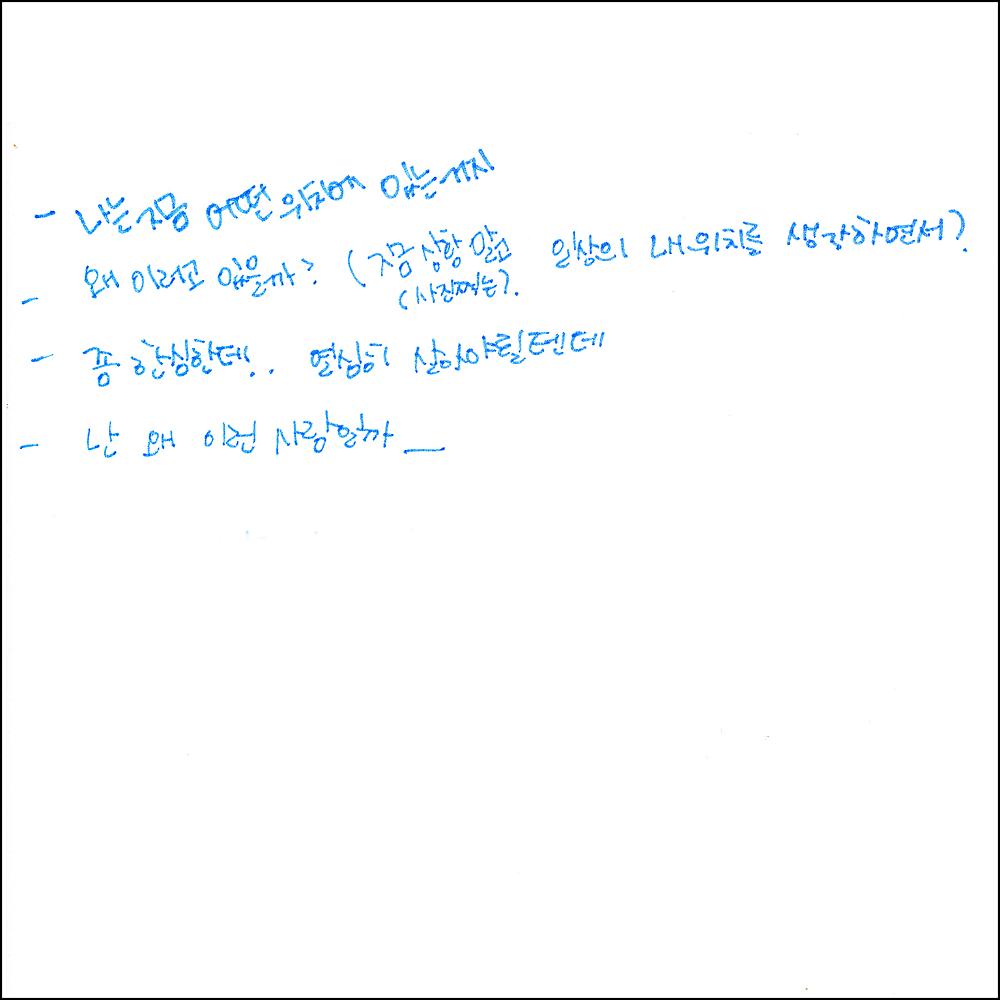 - 나는 지금 어떤 위치에 있는거지
- 왜 이러고 있을까? (지금 상황 말고 일상의 내 위치를 생각하면서).
(사진찍는).
- 좀 한심한데.. 열심히 살아야 할텐데
- 난 왜 이런 사람일까 __